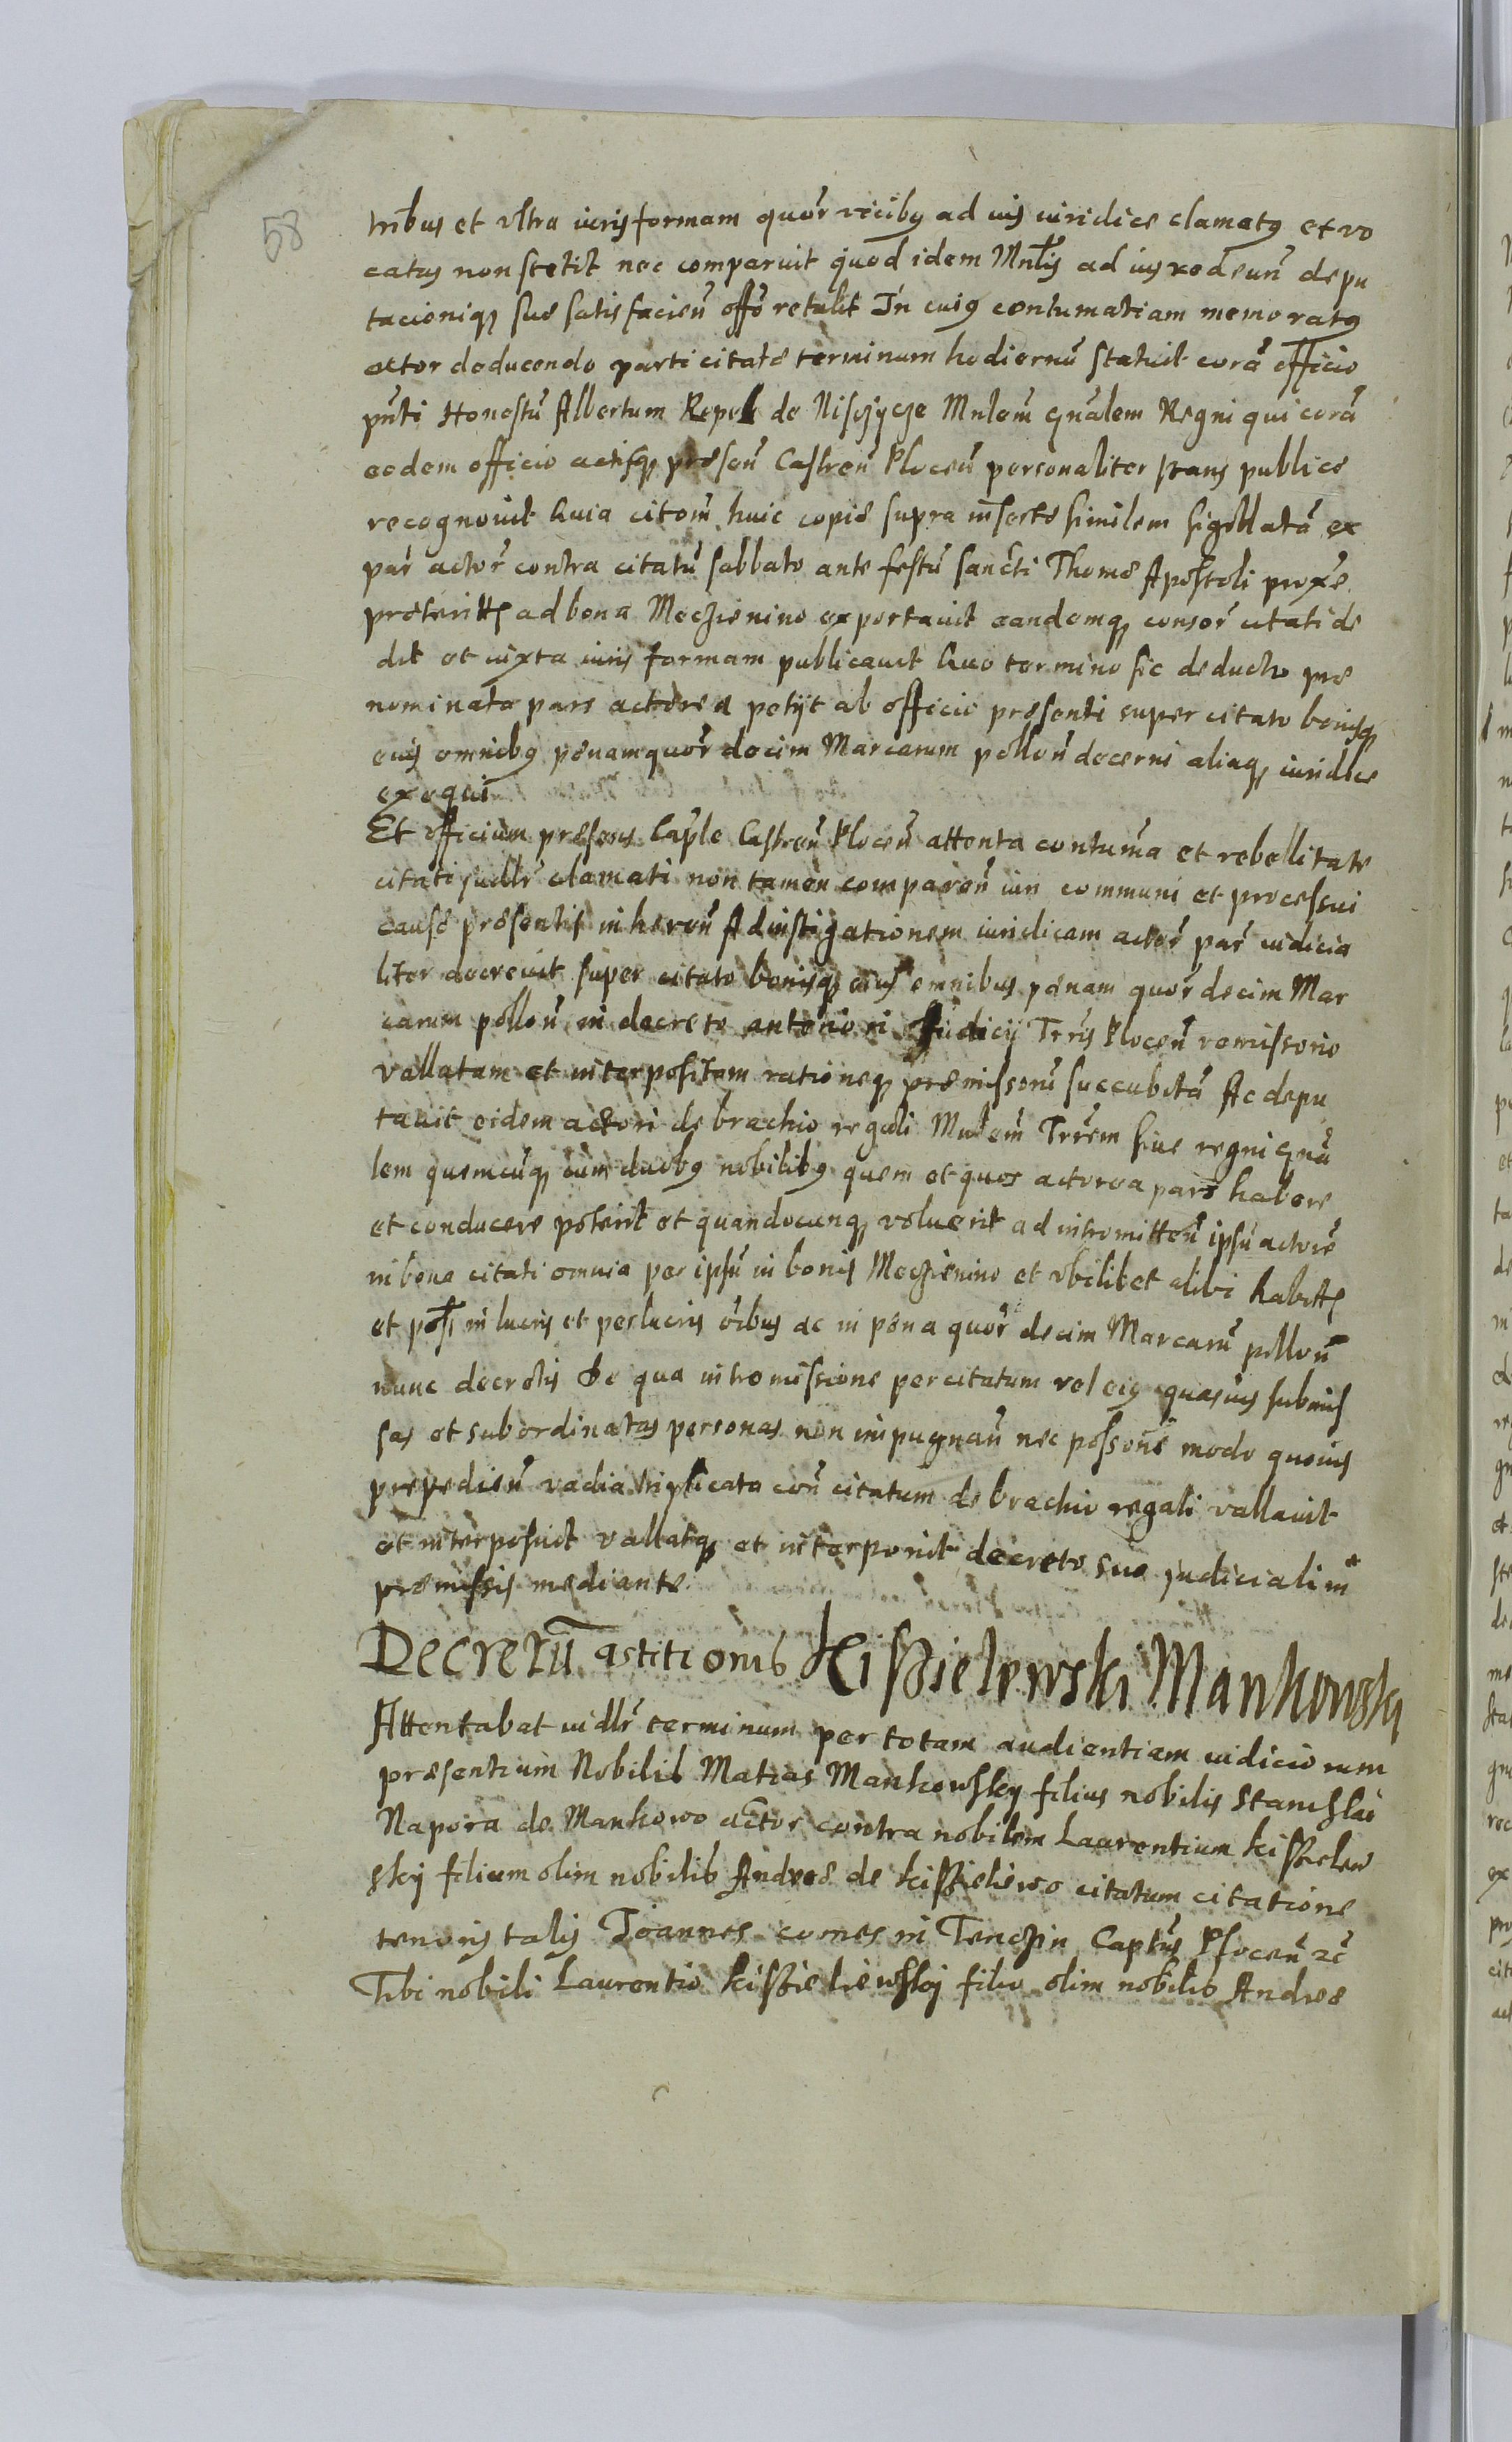 58
tribus et vltra iuris formam quor̃ vicibq ad ius iuridice clamatq et vo
catus non stetit nec comparuit quod idem Mnlis ad ius redeuñ depu
tacioniq; suæ satisfacieñ offõ retulit In cuiq contumatiam memoratq
actor deducendo parti citatæ terminum hodiernũ statuit corã officio
pñti Honestũ Albertum Repel de Nisczycze Mnlem̃ gñalem Regni qui corã
eodem officio actisq; præseñ Castreñ Ploceñ personaliter stans publice
recognouit Quia citoñm huic copiæ supra insertæ similem sigillatã ex
par̃ actor̃ contra citatũ sabbato ante festũ sancti Thomæ Apostoli proxe
præteritũ ad bona Meczienino exportauit eandemq; consor̃ citati de
dit et iuxta iuris formam publicauit Quo termino sic deducto præ
nominata pars actorea petijt ab officio præsenti super citato bonisq;
eius omnibq pænam quor̃ decim Marcarum polloñ decerni aliaq; iuridice
exequi
Et officium præsens Caple Castreñ Ploceñ attenta contum̃a et rebellitate
citati judlr̃ clamati non tamen compareñ iuri communi et processui
causæ præsentis inhereñ Ad instigationem iuridicam actor̃ par̃ iudicia
liter decreuit super citato bonisq; eius omnibus pænam quor̃ decim Mar
carum polloñ in decreto anteriori Judicij Trr̃is Ploceñ remissorio
vallatam et interpositam rationeq; præmissorũ succubitã Ac depu
tauit eidem actori de brachio regali Mnlem̃ Trr̃em siue regni gñã
lem quemcũq; cum duobq nobilibq quem et quos actorea pars habere
et conducere poterit et quandocunq; voluerit ad intromitteñ ipsũ actorẽ
in bona citati omnia per ipsũ in bonis Meczienino et vbilibet alibi habitã
et poss̃ in lucris et perlucris oĩbus ac in pæna quor̃ decim Marcarũ polloñ
nunc decretis De qua intromissione per citatum vel eiq quasuis submis
sas et subordinatas personas non impugnañ nec possoñe modo quouis
præpedieñ vadia triplicata coñ citatum de brachio regali vallauit
et interposuit vallatq; et interponit decreto suo judiciali in
præmissis mediante.
Decretũ astitionis Kissielewski Mankowsky
Attentabat iudlr̃ terminum per totam audientiam iudiciorum
præsentium Nobilis Matias Mankowsky filius nobilis Stanislai
Napora de Mankowo actor contra nobilem Laurentium Kissielew
sky filium olim nobilis Andreæ de Kissielewo citatum citatione
tenoris talis Joannes comes in Tenczin Captũs Ploceñ &c
Tibi nobili Laurentio Kissielewsky filio olim nobilis Andreæ